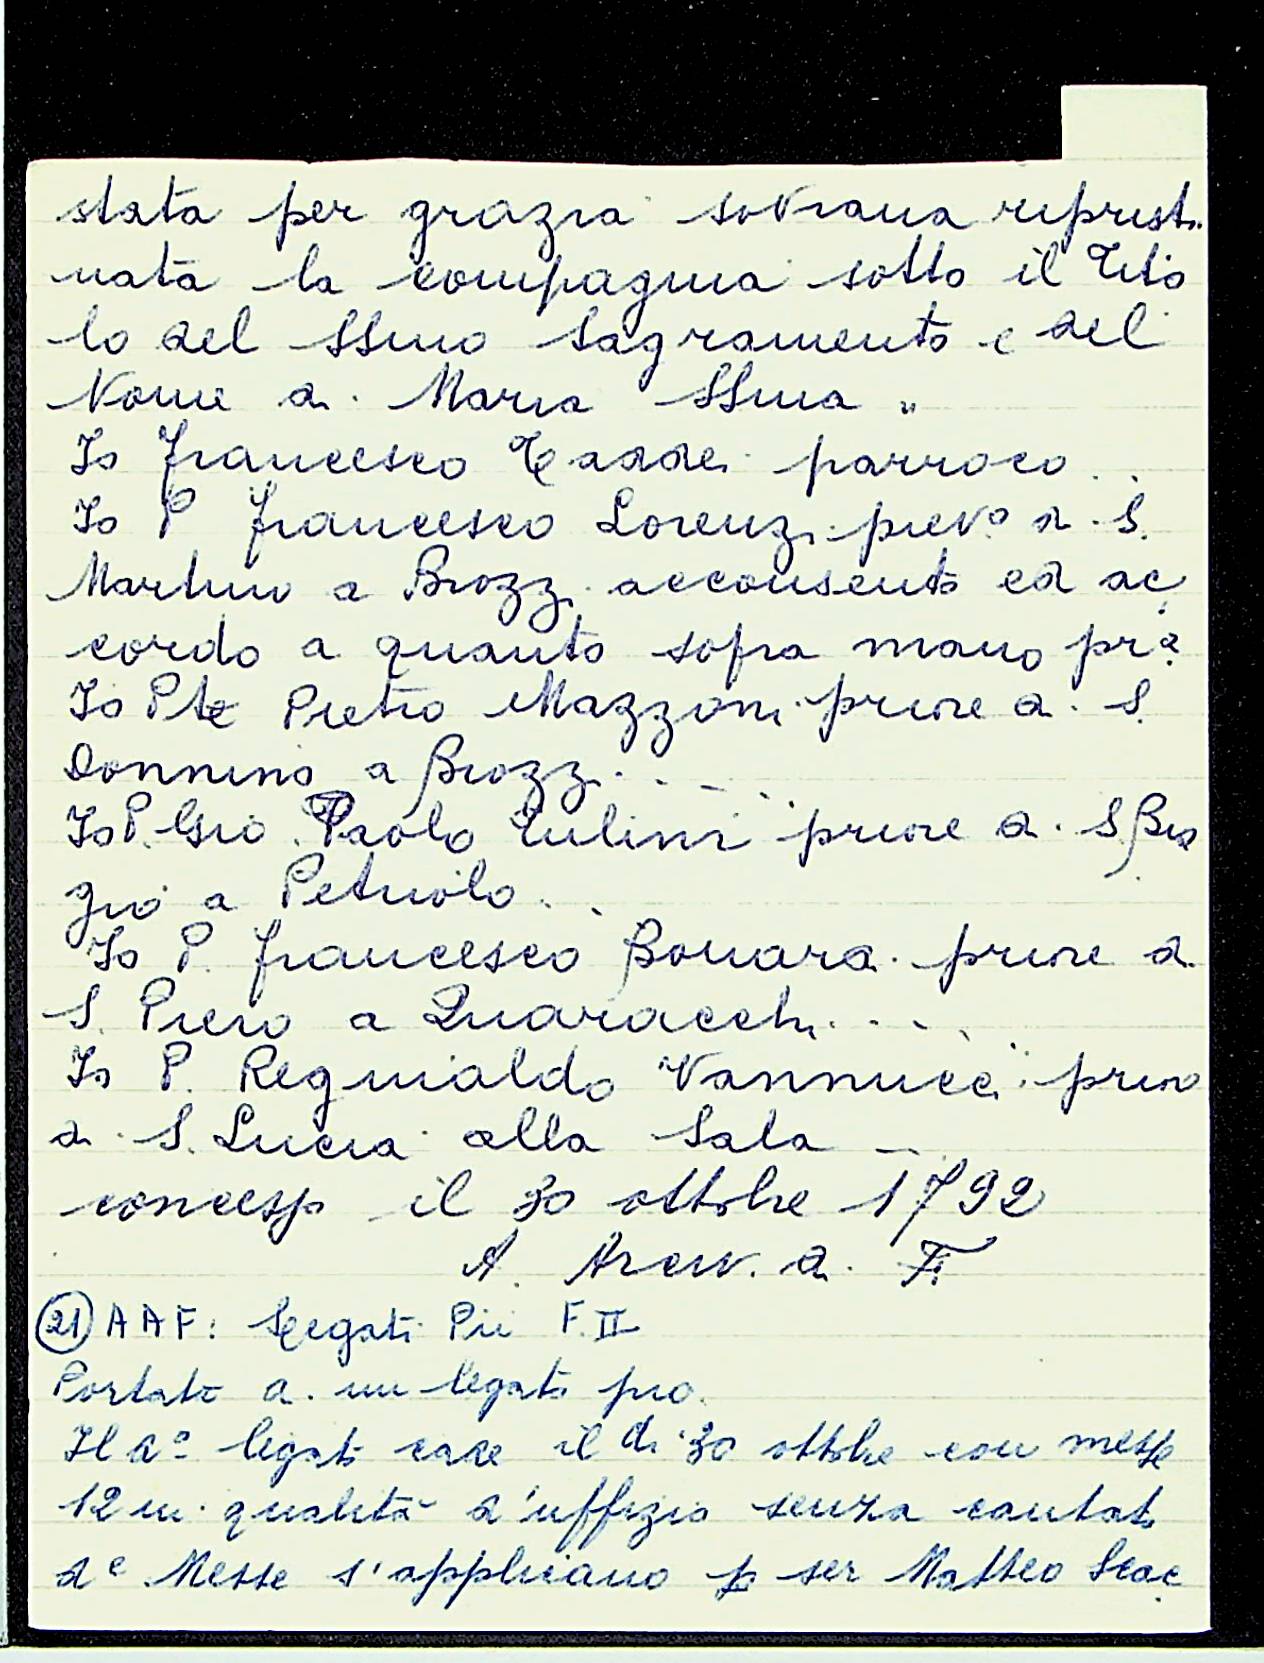 stata per grazia sovrana riprist.
nata la compagnia sotto il Tito
lo del SSmo Sagramento e del
Nome di Maria SSma "
Io Francesco Taddei parroco . .
Io P Francesco Lorenzi pievo di S.
Martino a Brozzi acconsento ed ac
cordo a quanto sopra mano pra
Io Pte Pietro Mazzoni priore di S.
Donnino a Brozzi . . . .
Io P. Gio. Paolo Tulini priore di S Bia
gio a Petriolo . .
Io P. Francesco Bonardi priore di
S. Piero a Quaracchi . . . .
Io P. Reginaldo Vannucci prior
di S. Lucia alla Sala _
concesp il 30 ottobre 1792
A. Arciv. di Fi
(21) A A F : Legati Pii F. II
Portate di un legato pio.
Il do legato cade il dì 30 ottobre con messe
12 in qualità d'uffizio senza cantato
de Messe s'applicano p ser Matteo Scac